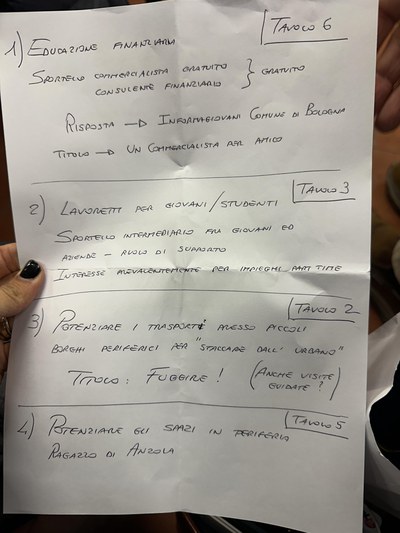 TAVOLO 6
1) EDUCAZIONE FINANZIARIA
SPORTELLO COMMERCIALISTA GRATUITO
CONSULENTE FINANZIARIO } GRATUITO
RISPOSTA → INFORMAGIOVANI COMUNE DI BOLOGNA
TITOLO → UN COMMERCIALISTA PER AMICO
TAVOLO 3
2) LAVORETTI PER GIOVANI/STUDENTI
SPORTELLO INTERMEDIARIO FRA GIOVANI ED
AZIENDE - RUOLO DI SUPPORTO
INTERESSE PREVALENTEMENTE PER IMPIEGHI PART TIME
TAVOLO 2
3) POTENZIARE I TRASPORTI PRESSO PICCOLI
BORGHI PERIFERICI PER "STACCARE DALL'URBANO"
TITOLO: FUGGIRE! (ANCHE VISITE
GUIDATE?)
TAVOLO 5
4) POTENZIARE GLI SPAZI IN PERIFERIA
RAGAZZO DI ANZOLA